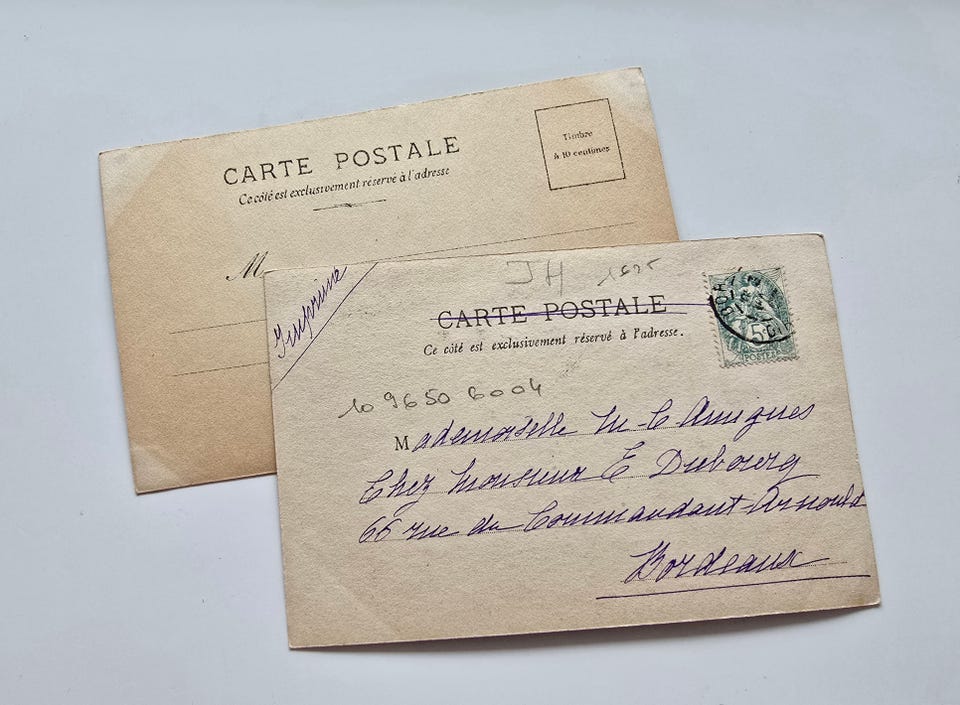 CARTE POSTALE
Ce côté est exclusivement réservé à l'adresse
Timbre
à 10 centimes
M
Imprimé
JH
CARTE POSTALE
Ce côté est exclusivement réservé à l'adresse.
5
POSTES
10 9650 6004
Mademoiselle M-C Amigues
Chez Monsieur E Dubourg
66 rue du Commandant-Arnould
Bordeaux